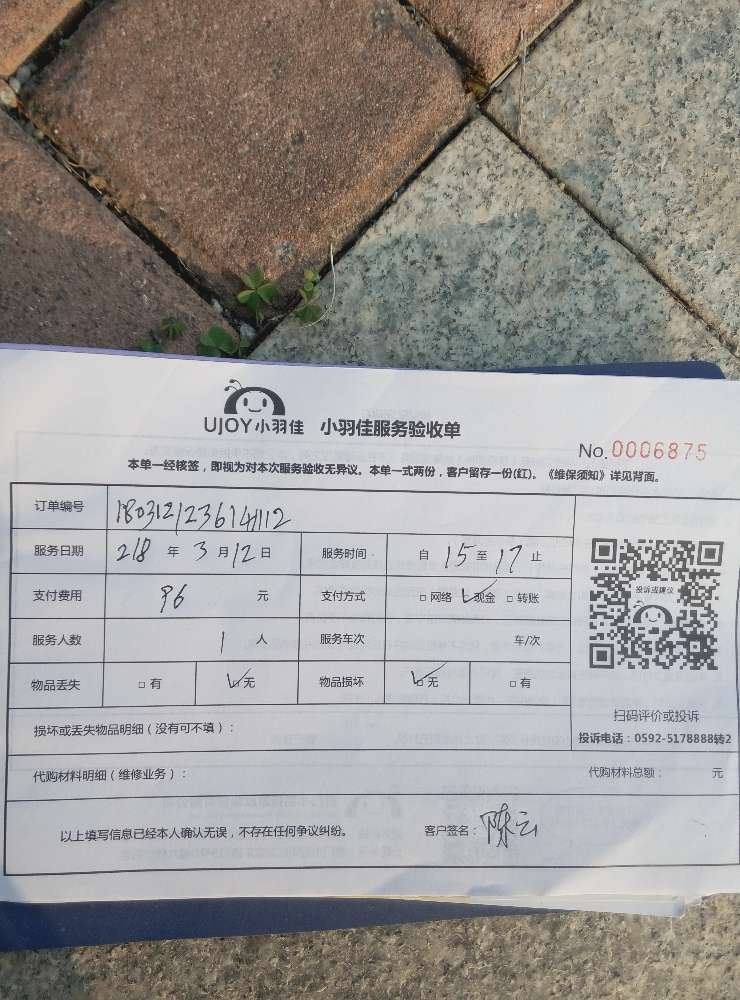 UJOY小羽佳 小羽佳服务验收单
No.0006875
本单一经核签，即视为对本次服务验收无异议。本单一式两份，客户留存一份(红)。《维保须知》详见背面。
订单编号
服务日期 218 年 3 月 12 日 服务时间 自 15 至 17 止
支付费用 96 元 支付方式 □ 网络 ☑ 现金 □ 转账
服务人数 1 人 服务车次 车/次
物品丢失 □ 有 ☑ 无 物品损坏 ☑ 无 □ 有
投诉或建议
扫码评价或投诉
投诉电话：0592-5178888转2
损坏或丢失物品明细（没有可不填）：
代购材料明细（维修业务）： 代购材料总额： 元
以上填写信息已经本人确认无误，不存在任何争议纠纷。 客户签名：陈云